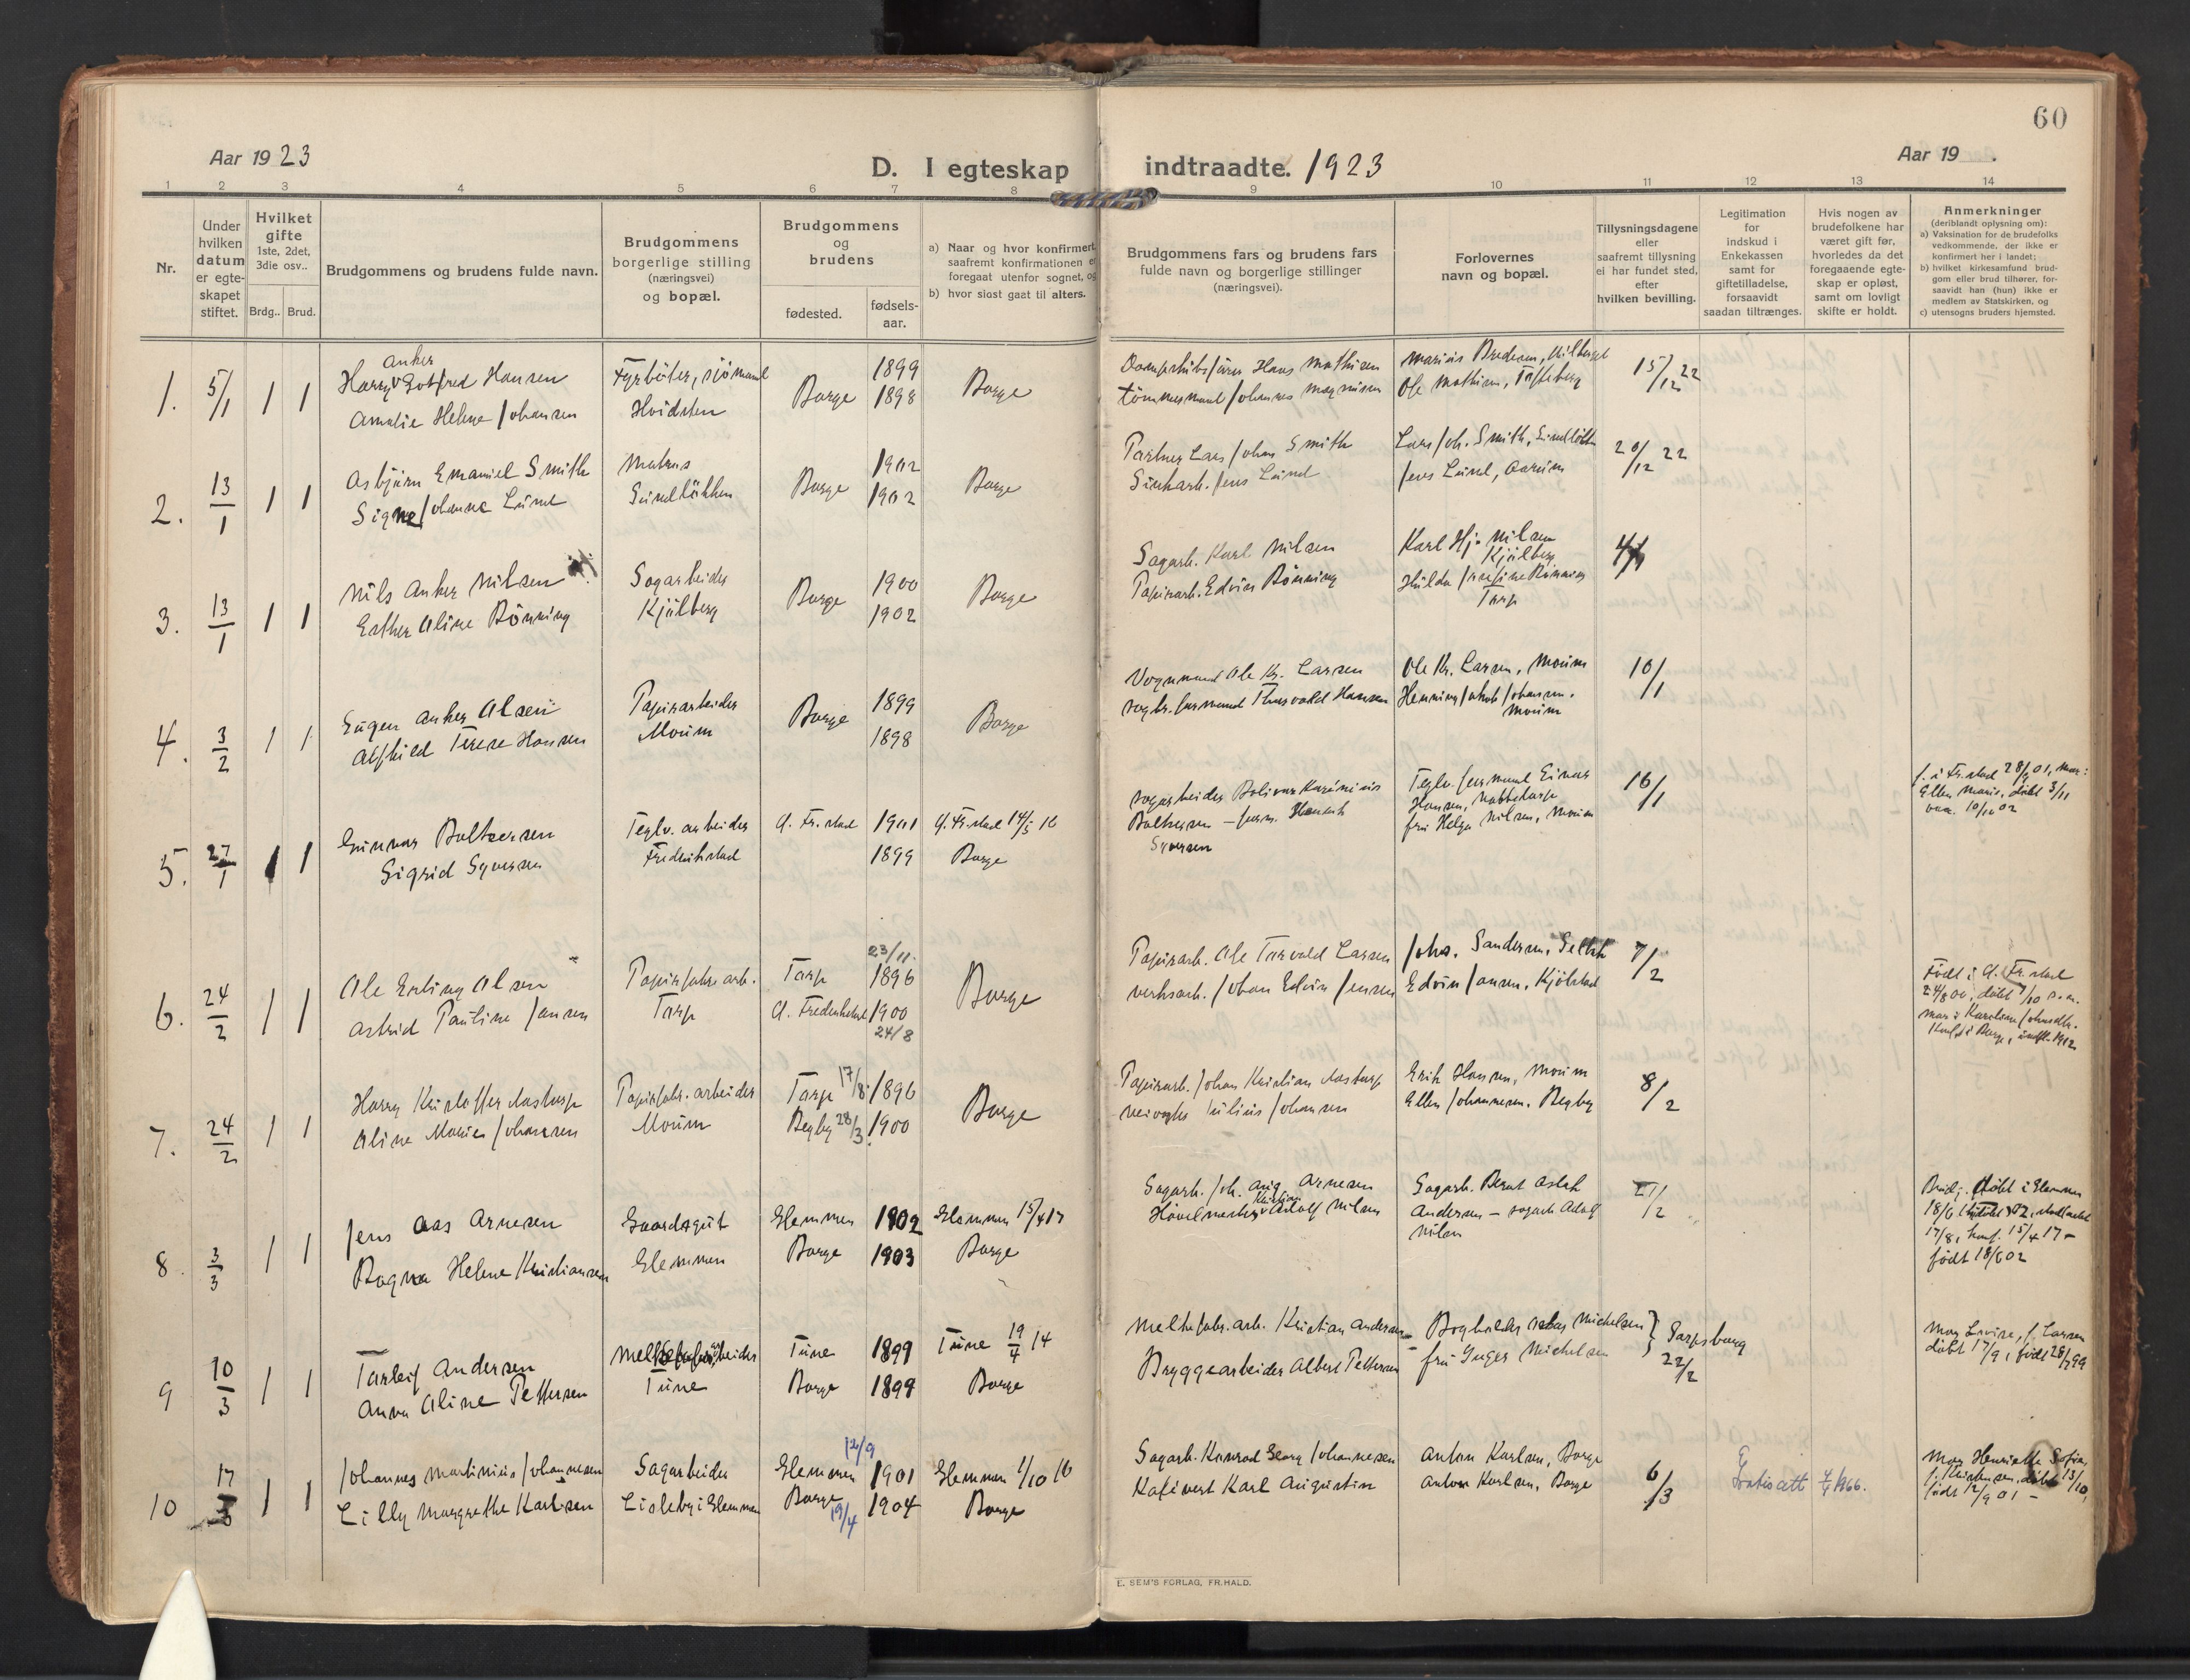 60
Aar 1923
Aar 19 .
D. I egteskap indtraadte. 1923
1 2 3 4 5 6 7 8 9 10 11 12 13 14
Nr.
Under
hvilken
datum
er egte-
skapet
stiftet.
Hvilket
gifte
1ste, 2det,
3die osv..
Brdg.. Brud.
Brudgommens og brudens fulde navn.
Brudgommens
borgerlige stilling
(næringsvei)
og bopæl.
Brudgommens
og
brudens
fødested.
fødsels-
aar.
a) Naar og hvor konfirmert,
saafremt konfirmationen er
foregaat utenfor sognet, og
b) hvor sidst gaat til alters.
Brudgommens fars og brudens fars
fulde navn og borgerlige stillinger
(næringsvei).
Forlovernes
navn og bopæl.
Tillysningsdagene
eller
saafremt tillysning
ei har fundet sted,
efter
hvilken bevilling.
Legitimation
for
indskud i
Enkekassen
samt for
giftetilladelse,
forsaavidt
saadan tiltrænges.
Hvis nogen av
brudefolkene har
været gift før,
hvorledes da det
foregaaende egte-
skap er opløst,
samt om lovligt
skifte er holdt.
Anmerkninger
(deriblandt oplysning om):
a) Vaksination for de brudefolks
vedkommende, der ikke er
konfirmert her i landet;
b) hvilket kirkesamfund brud-
gom eller brud tilhører, for-
saavidt han (hun) ikke er
medlem av Statskirken, og
c) utensogns bruders hjemsted.
1. 5/1 1 1
Anker
Harry Gotfred Hansen
Amalie Helene Johansen
Fyrbøter, sjömand
Hvidsten
Borge
1899
1898
Borge
Hans Mathisen
tömmermand Johannes Magnussen
Marius Bredesen,
Ole Mathisen, Tofteberg
15/12 22
2. 13/1 1 1
Asbjørn Emanuel Smith
Signe Johanne Lund
Matros
Sundløkken
Borge
1902
1902
Borge
Lars Johan Smith
Jens Lund
Lars Joh. Smith, Sundløkken
Jens Lund, Aarum
20/12 22
3. 13/1 1 1
Nils Anker Nilsen
Esther Aline Rønning
Sagarbeider
Kjølberg
Borge
1900
1902
Borge
Sagarb. Karl Nilsen
Papirarb. Edvin Rønning
Karl Hj. Nilsen
Kjølberg
Hulda Rønning
Torp
4/1
4. 3/2 1 1
Eugen Anker Olsen
Alfhild Terese Hansen
Papirarbeider
Moum
Borge
1899
1898
Borge
Vognmand Ole Kr. Larsen
sagbr. formand Thorvald Hansen
Ole Kr. Larsen, Moum
Henning Jakob Johansen,
Moum
10/1
5. 27/1 1 1
Gunnar Baltzersen
Sigrid Syversen
Teglv. arbeider
Fredrikstad
Gl. Fr.stad
1901
1899
Gl. Fr.stad 14/5 16
Borge
sagarbeider Bolivar Kareninus
Baltzersen – form.
Syversen
Teglv. formand Einar
Hansen, Nabbetorp
fru Helga Nilsen, Moum
16/1
f. i Fr.stad 28/9 01, mor:
Ellen Marie, døbt 3/11
vac. 10/10 02
6. 24/2 1 1
Ole Erling Olsen
Astrid Pauline Jansen
Papirfabr. arb.
Torp
Torp
Gl. Fredrikstad
23/11
1896
1900
24/8
Borge
Papirarb. Ole Torvald Larsen
verksarb. Johan Edvin Jensen
Johs. Sandersen, Sellebk
Edvin Jansen, Kjølstad
7/2
Født i Gl. Fr.stad
24/8 00, døbt 7/10 s.a.
mor: Karoline Johansdtr.
Konf. i Borge, indfl. 1912
7. 24/2 1 1
Harry Kristoffer Aastorp
Aline Marie Johansen
Papirfabr. arbeider
Moum
Torp 17/8
Begby 28/3
1896
1900
Borge
Papirarb. Johan Kristian Aastorp
veivogter Julius Johansen
Erik Hansen, Moum
Ellen Johannesen, Begby
8/2
8. 3/3 1 1
Jens Aas Arnesen
Ragna Helene Kristiansen
Gaardsgut
Glemmen
Glemmen
Borge
1902
1903
Glemmen 15/4 17
Borge
Sagarb. Joh. Aug. Arnesen
Kristian
Høvelmester Adolf Nilsen
Sagarb. Bernt Aslak
Andersen – sagarb. Adolf
Nilsen
21/2
Brudg. døbt i Glemmen
17/8, konf. 15/4 17 –
født 18/6 02
9 10/3 1 1
Torleif Andersen
Anna Aline Pettersen
Melkefabr. arbeider
Tune
Tune
Borge
1899
1899
Tune 19/4 14
Borge
Melkefabr. arb. Kristian Andersen
Bryggearbeider Albert Pettersen
Bogholder Michelsen
fru Inger Michelsen
Sarpsborg
22/2
Mor Lovise, f. Larsen
døbt 17/9, født 28/7 99
10 17/3 1 1
Johannes Martinius Johannesen
Lilly Margrethe Karlsen
Sagarbeider
Lisleby i Glemmen
12/9
Glemmen
Borge
19/4
1901
1904
Glemmen 1/10 16
Borge
Sagarb. Konrad Georg Johannesen
Kafevert Karl Augustin
Anton Karlsen, Borge
Anton Karlsen, Borge
6/3
Gratisatt 4/4 1966.
Mor Henriette Sofie,
f. Kristensen, døbt 13/10,
født 12/9 01 –
E. SEM'S FORLAG, FR.HALD.